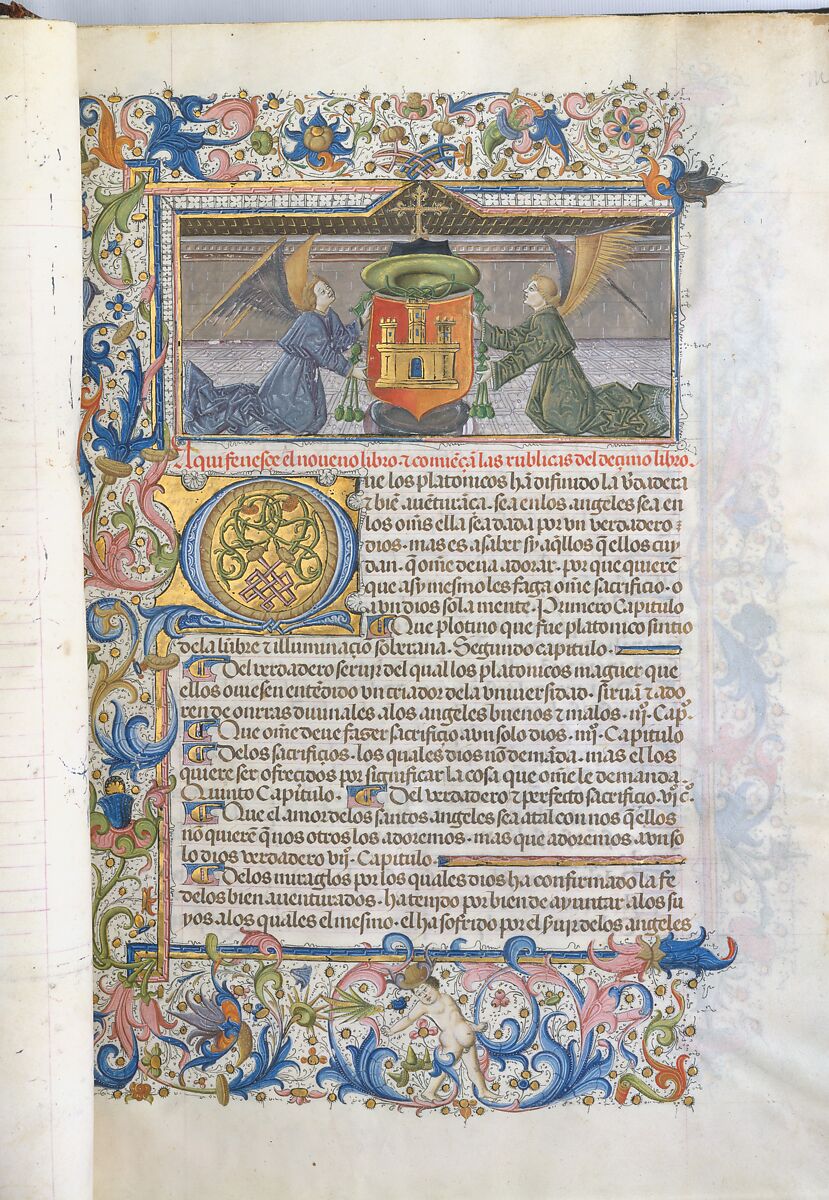 Aqui fenesce el noueno libro ⁊ comiẽçã las rublicas del deçimo libro.
Que los platonicos hã difinido la v̉dadera
⁊ biẽ auẽturãça. sea en los angeles sea en
los om̃s ella sea dada por vn verdadero
dios. mas es a saber sy aq̃llos q̃ ellos cuy
dan. q̃ om̃e deua adorar. por que quierẽ
que asy mesmo les faga om̃e sacrificio. o
a vn dios sola mente. Primero Capitulo
Que plotino que fue platonico sintio
de la lũbre ⁊ illuminaçio soberana. Segundo capitulo.
Del verdadero seruir del qual los platonicos maguer que
ellos ouiesen entẽdido vn criador de la vniuersidad. siruiã ⁊ ado
ren de onrras diuinales a los angeles buenos ⁊ malos. iij. Cap̃.
Que om̃e deue fazer sacrificio a vn solo dios. iiij. Capitulo
De los sacrificios. los quales dios nõ demãda. mas el los
quiere ser ofrecidos por significar la cosa que om̃e le demanda.
Quinto Capitulo. Del verdadero ⁊ perfecto sacrificio. vj. c̃.
Que el amor de los santos angeles sea atal con nos q̃ ellos
nõ quierẽ q̃ nos otros los adoremos. mas que adoremos a vn so
lo dios verdadero vij. Capitulo.
De los miraglos por los quales dios ha confirmado la fe
de los bien auenturados. ha tenido por bien de ayuntar a los su
yos a los quales el mesmo. el ha sofrido por el s̃uir de los angeles